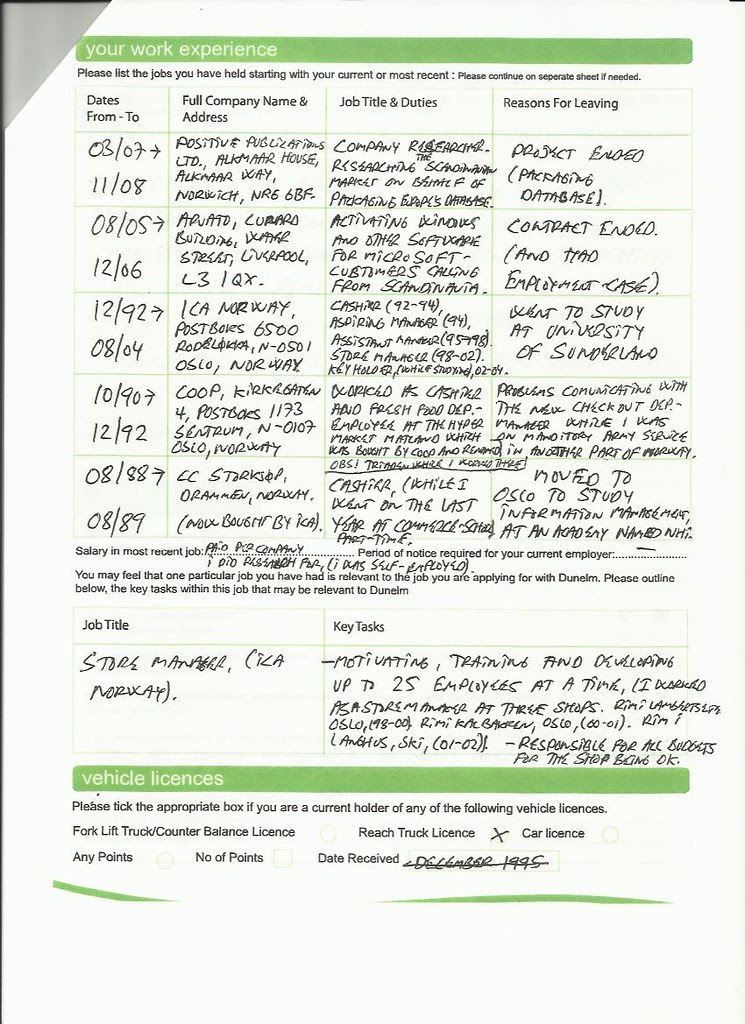 your work experience
Please list the jobs you have held starting with your current or most recent : Please continue on seperate sheet if needed.
Dates
From - To
Full Company Name &
Address
Job Title & Duties
Reasons For Leaving
03/07→
11/08
POSITIVE PUBLICATIONS
LTD., ALKMAAR HOUSE,
ALKMAAR WAY,
NORWICH, NR6 6BF.
COMPANY RESEARCHER.
RESEARCHING THE SCANDINAVIAN
MARKET ON BEHALF OF
PACKAGING EUROPE'S DATABASE.
PROJECT ENDED
(PACKAGING
DATABASE).
08/05→
12/06
ARVATO, CUNARD
BUILDING, WATER
STREET, LIVERPOOL,
L3 1QX.
ACTIVATING WINDOWS
AND OTHER SOFTWARE
FOR MICROSOFT-
CUSTOMERS CALLING
FROM SCANDINAVIA.
CONTRACT ENDED.
(AND HAD
EMPLOYMENT-CASE).
12/92→
08/04
ICA NORWAY,
POSTBOKS 6500
RODELØKKA, N-0501
OSLO, NORWAY
CASHIER (92-94),
ASPIRING MANAGER (94),
ASSISTANT MANAGER (95-98).
STORE MANAGER (98-02).
KEY HOLDER, (WHILE STUDYING), 02-04.
WENT TO STUDY
AT UNIVERSITY
OF SUNDERLAND
10/90→
12/92
COOP, KIRKEGATEN
4, POSTBOKS 1173
SENTRUM, N-0107
OSLO, NORWAY
WORKED AS CASHIER
AND FRESH FOOD DEP.-
EMPLOYEE AT THE HYPER
MARKET MATLAND WHICH
WAS BOUGHT BY COOP AND RENAMED
OBS! TRIADEN WHERE I WORKED THERE
PROBLEMS COMUNICATING WITH
THE NEW CHECKOUT DEP.-
MANAGER WHILE I WAS
ON MANDITORY ARMY SERVICE
IN ANOTHER PART OF NORWAY.
08/88→
08/89
CC STORKJØP,
DRAMMEN, NORWAY.
(NOW BOUGHT BY ICA).
CASHIER, (WHILE I
WENT ON THE LAST
YEAR AT COMMERCE-SCHOOL
PART-TIME.
MOVED TO
OSLO TO STUDY
INFORMATION MANAGEMENT,
AT AN ACADEMY NAMED NHI.
Salary in most recent job: PAID PER COMPANY Period of notice required for your current employer: —
I DID RESEARCH FOR, (I WAS SELF-EMPLOYED).
You may feel that one particular job you have had is relevant to the job you are applying for with Dunelm. Please outline
below, the key tasks within this job that may be relevant to Dunelm
Job Title
Key Tasks
STORE MANAGER, (ICA
NORWAY).
-MOTIVATING, TRAINING AND DEVELOPING
UP TO 25 EMPLOYEES AT A TIME, (I WORKED
AS A STORE MANAGER AT THREE SHOPS. RIMI LAMBERTSETER
OSLO, (98-00). RIMI KALBAKKEN, OSLO, (00-01). RIMI
LANGHUS, SKI, (01-02)). - RESPONSIBLE FOR ALL BUDGETS
FOR THE SHOP BEING OK.
vehicle licences
Please tick the appropriate box if you are a current holder of any of the following vehicle licences.
Fork Lift Truck/Counter Balance Licence Reach Truck Licence X Car licence
Any Points No of Points Date Received DECEMBER 1995